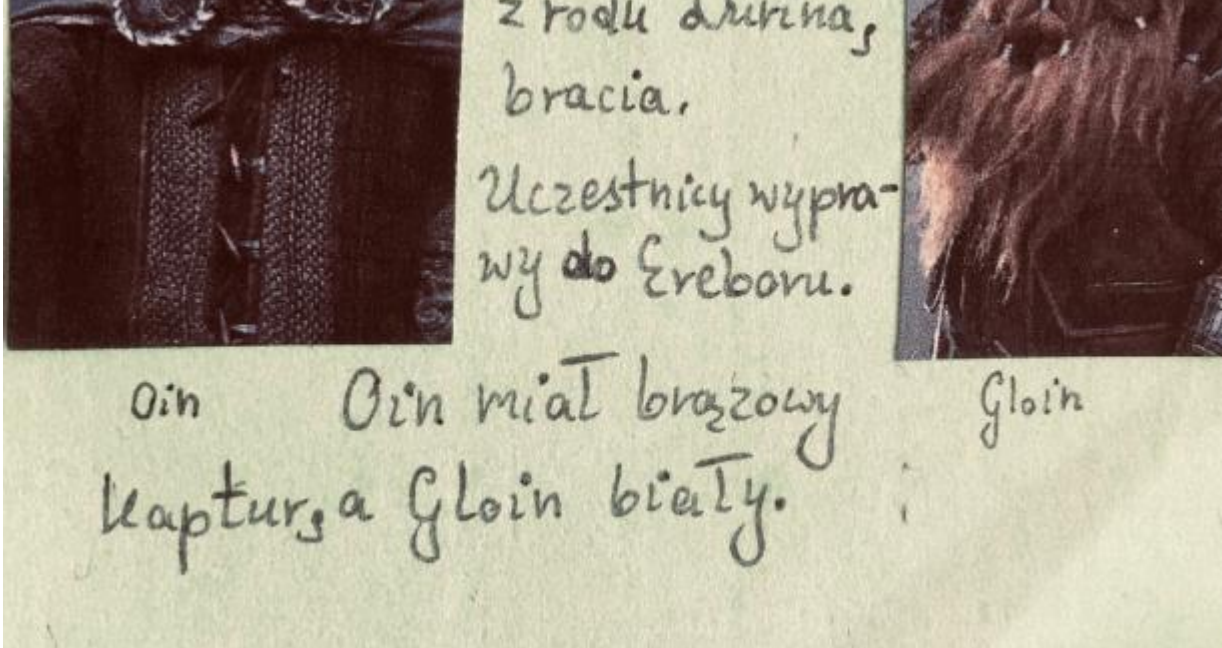 z rodu durina,
bracia.
Uczestnicy wypra-
wy do Ereboru.
Oin
Oin miał brązowy
Gloin
kaptur, a Gloin biały.